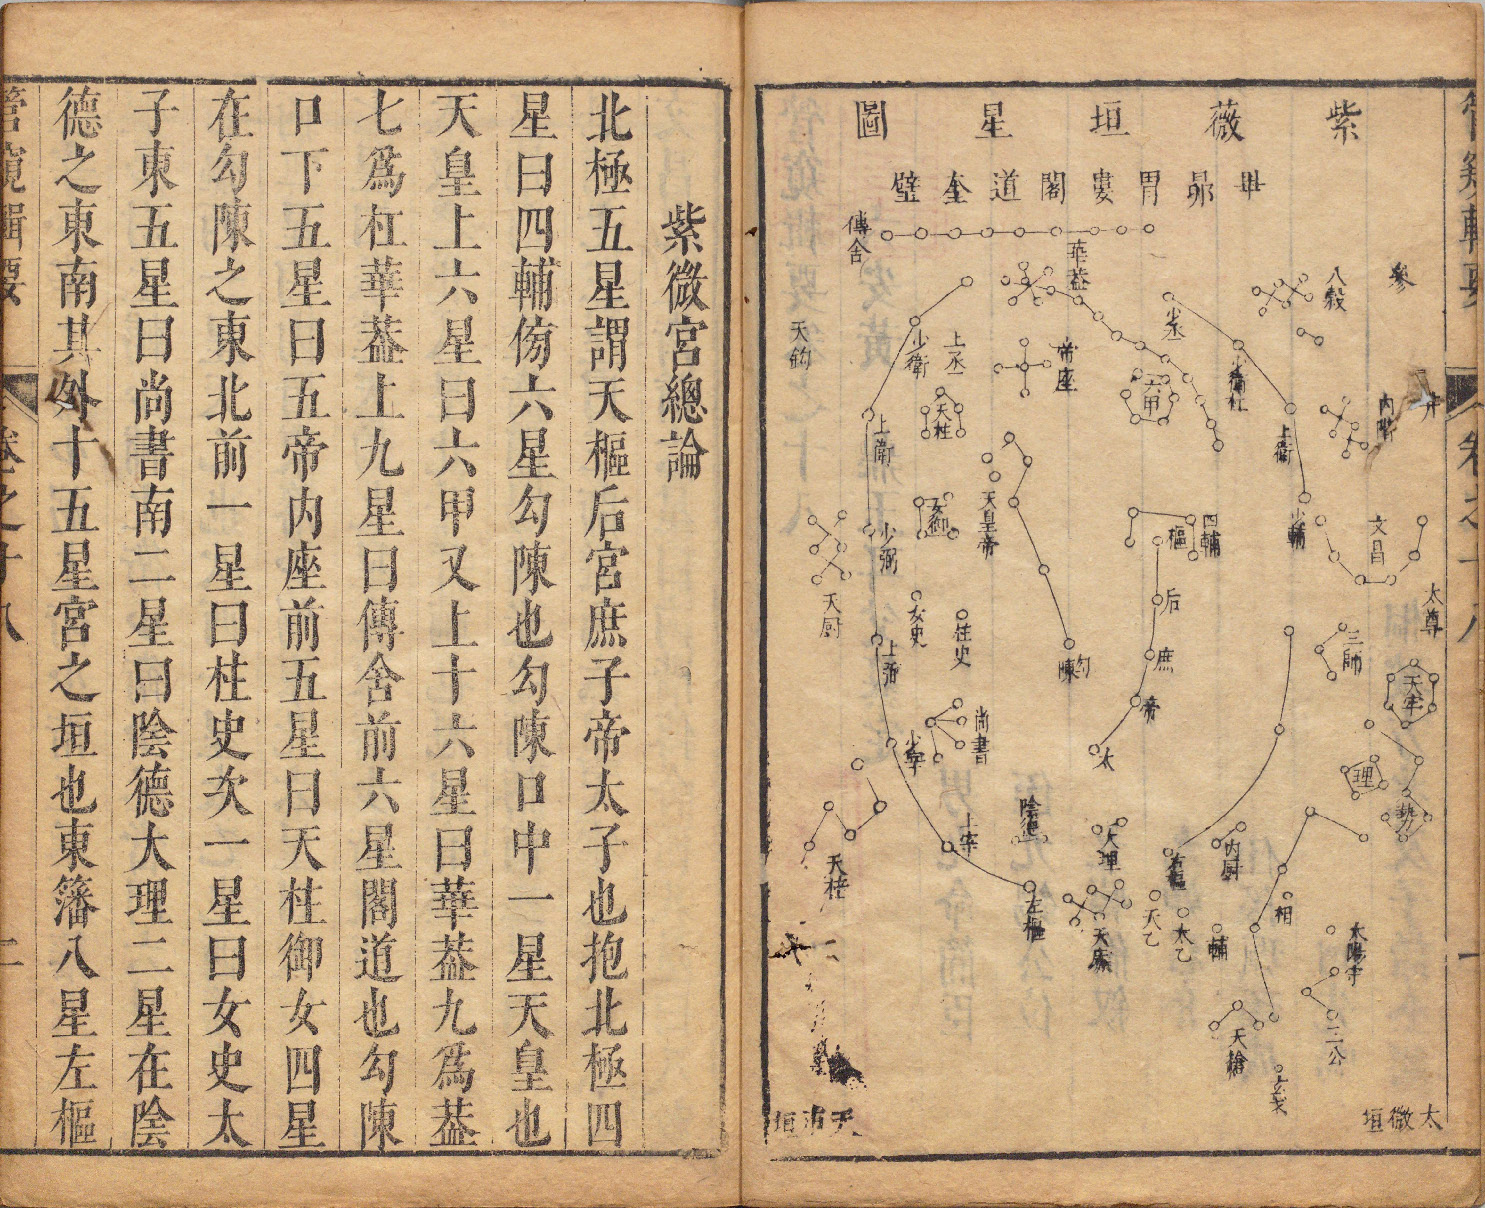 紫薇垣星圖
畢昴胃婁閣道奎壁
參
井
八穀
內階
華蓋
傳舍
少丞
少衛
上衛
少輔
六甲
帝座
上丞
少衛
天鈎
天柱
上衛
文昌
太尊
三師
天牢
理
勢
四輔
樞
后
庶
帝
太
天皇帝
勾陳
女御
少弼
天厨
女史
柱史
上弼
尚書
少宰
上宰
天棓
陰德
大理
左樞
右樞
天床
天乙
太乙
內厨
輔
相
太陽守
三公
天槍
玄戈
太微垣
天市垣
管窺輯要
卷之十八
一
紫微宮總論
北極五星謂天樞后宮庶子帝太子也抱北極四
星曰四輔傍六星勾陳也勾陳口中一星天皇也
天皇上六星曰六甲又上十六星曰華蓋九爲蓋
七爲杠華蓋上九星曰傳舍前六星閣道也勾陳
口下五星曰五帝内座前五星曰天柱御女四星
在勾陳之東北前一星曰柱史次一星曰女史太
子東五星曰尚書南二星曰陰德大理二星在陰
德之東南其外十五星宮之垣也東籓八星左樞
管窺輯要
卷之十八
二